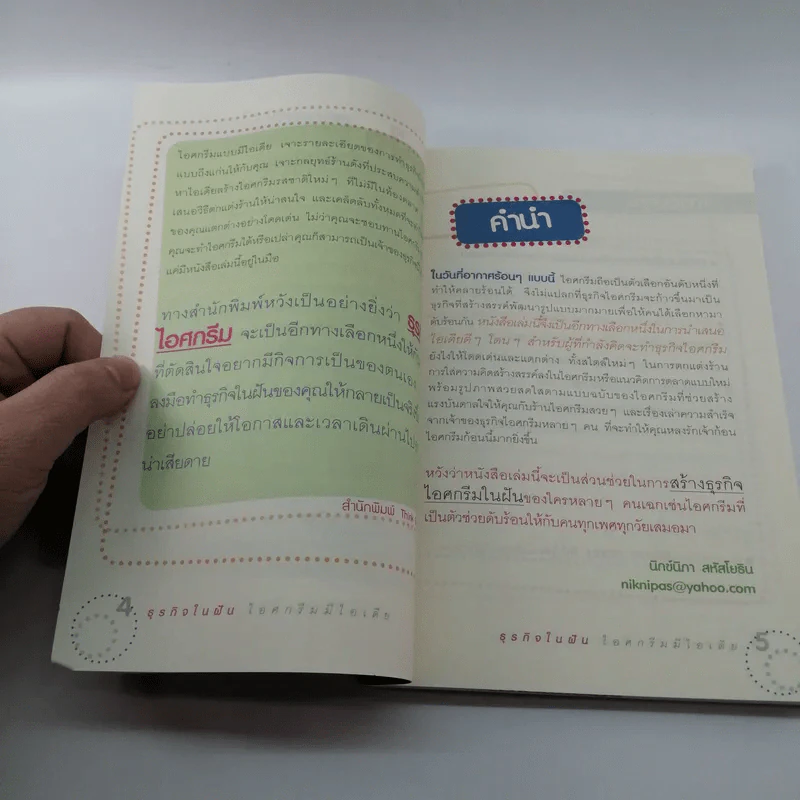 ไอศกรีมแบบมีไอเดีย เจาะรายละเอียดของการทำธุรกิจ
แบบถึงแก่นให้กับคุณ เจาะกลยุทธ์ร้านดังที่ประสบความ
หาไอเดียสร้างไอศกรีมรสชาติใหม่ๆ ที่ไม่มีในท้องตลาด
เสนอวิธีตกแต่งร้านให้น่าสนใจ และเคล็ดลับทั้งหมดที่จะ
ของคุณแตกต่างอย่างโดดเด่น ไม่ว่าคุณจะชอบทานไอศกรีม
คุณจะทำไอศกรีมได้หรือเปล่าคุณก็สามารถเป็นเจ้าของธุรกิจ
แค่มีหนังสือเล่มนี้อยู่ในมือ
ทางสำนักพิมพ์หวังเป็นอย่างยิ่งว่า
ไอศกรีม จะเป็นอีกทางเลือกหนึ่งให้
ที่ตัดสินใจอยากมีกิจการเป็นของตนเอง
ลงมือทำธุรกิจในฝันของคุณให้กลายเป็นจริง
อย่าปล่อยให้โอกาสและเวลาเดินผ่านไป
น่าเสียดาย
สำนักพิมพ์
4 ธุรกิจในฝัน ไอศกรีมมีไอเดีย
คำนำ
ในวันที่อากาศร้อนๆ แบบนี้ ไอศกรีมถือเป็นตัวเลือกอันดับหนึ่งที่
ทำให้คลายร้อนได้ จึงไม่แปลกที่ธุรกิจไอศกรีมจะก้าวขึ้นมาเป็น
ธุรกิจที่สร้างสรรค์พัฒนารูปแบบมากมายเพื่อให้คนได้เลือกหามา
ดับร้อนกัน หนังสือเล่มนี้จึงเป็นอีกทางเลือกหนึ่งในการนำเสนอ
ไอเดียดีๆ โดนๆ สำหรับผู้ที่กำลังคิดจะทำธุรกิจไอศกรีม
ยังไงให้โดดเด่นและแตกต่าง ทั้งสไตล์ใหม่ๆ ในการตกแต่งร้าน
การใส่ความคิดสร้างสรรค์ลงในไอศกรีมหรือแนวคิดการตลาดแบบใหม่
พร้อมรูปภาพสวยสดใสตามแบบฉบับของไอศกรีมที่ช่วยสร้าง
แรงบันดาลใจให้คุณกับร้านไอศกรีมสวยๆ และเรื่องเล่าความสำเร็จ
จากเจ้าของธุรกิจไอศกรีมหลายๆ คน ที่จะทำให้คุณหลงรักเจ้าก้อน
ไอศกรีมก้อนนี้มากยิ่งขึ้น
หวังว่าหนังสือเล่มนี้จะเป็นส่วนช่วยในการสร้างธุรกิจ
ไอศกรีมในฝันของใครหลายๆ คนเฉกเช่นไอศกรีมที่
เป็นตัวช่วยดับร้อนให้กับคนทุกเพศทุกวัยเสมอมา
นิกข์นิภา สหัสโยธิน
niknipas@yahoo.com
ธุรกิจในฝัน ไอศกรีมมีไอเดีย 5